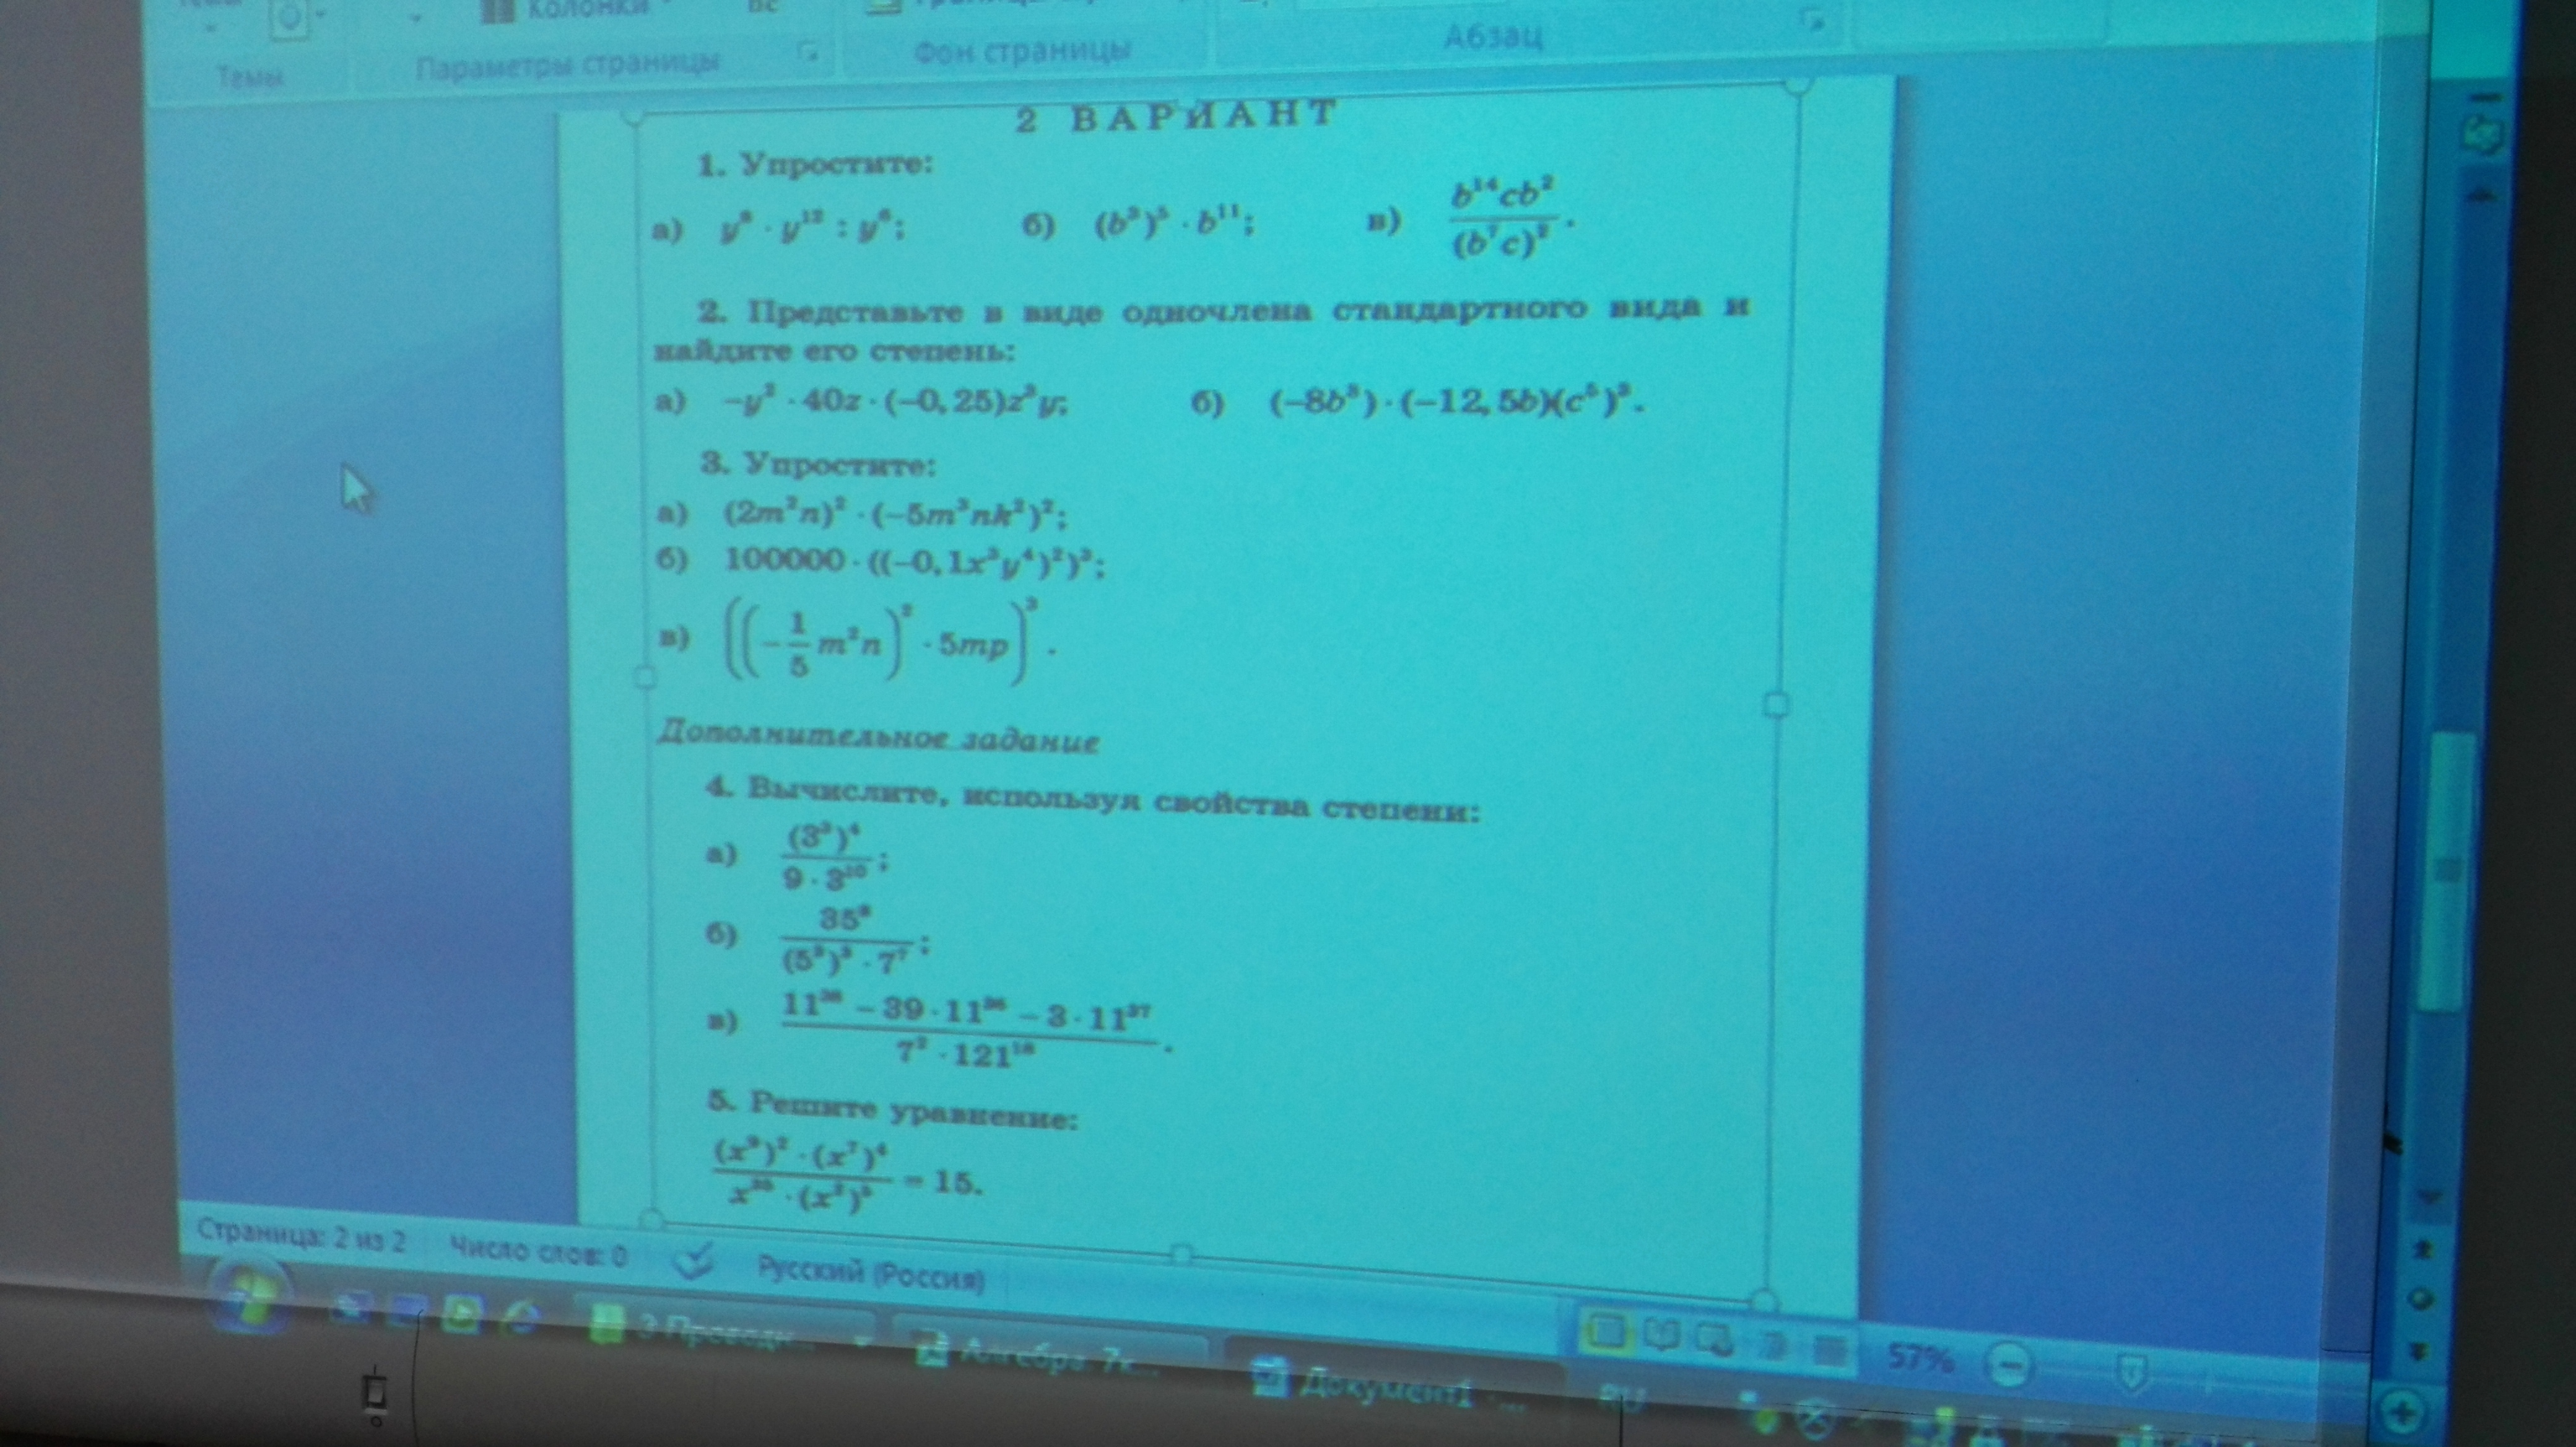 Колонки
Темы
Параметры страницы
Фон страницы
Абзац
2 ВАРИАНТ
1. Упростите:
а) y⁸ · y¹² : y⁶; б) (b³)⁵ · b¹¹; в) b¹⁴cb² / (b⁷c)².
2. Представьте в виде одночлена стандартного вида и
найдите его степень:
а) –y² · 40z · (–0,25)z³y; б) (–8b³) · (–12,5b)(c⁵)³.
3. Упростите:
а) (2m²n)² · (–5m³nk²)²;
б) 100000 · ((–0,1x³y⁴)²)³;
в) ((–1/5 m²n)² · 5mp)³.
Дополнительное задание
4. Вычислите, используя свойства степени:
а) (3³)⁴ / 9 · 3¹⁰;
б) 35⁸ / (5²)³ · 7⁷;
в) 11³⁸ – 39 · 11³⁶ – 3 · 11³⁷ / 7² · 121¹⁸.
5. Решите уравнение:
(x⁹)² · (x⁷)⁴ / x³⁵ · (x²)⁵ = 15.
Страница: 2 из 2 Число слов: 0 Русский (Россия)
57%
3 Проводн... Алгебра 7к... Документ1 ...
RU